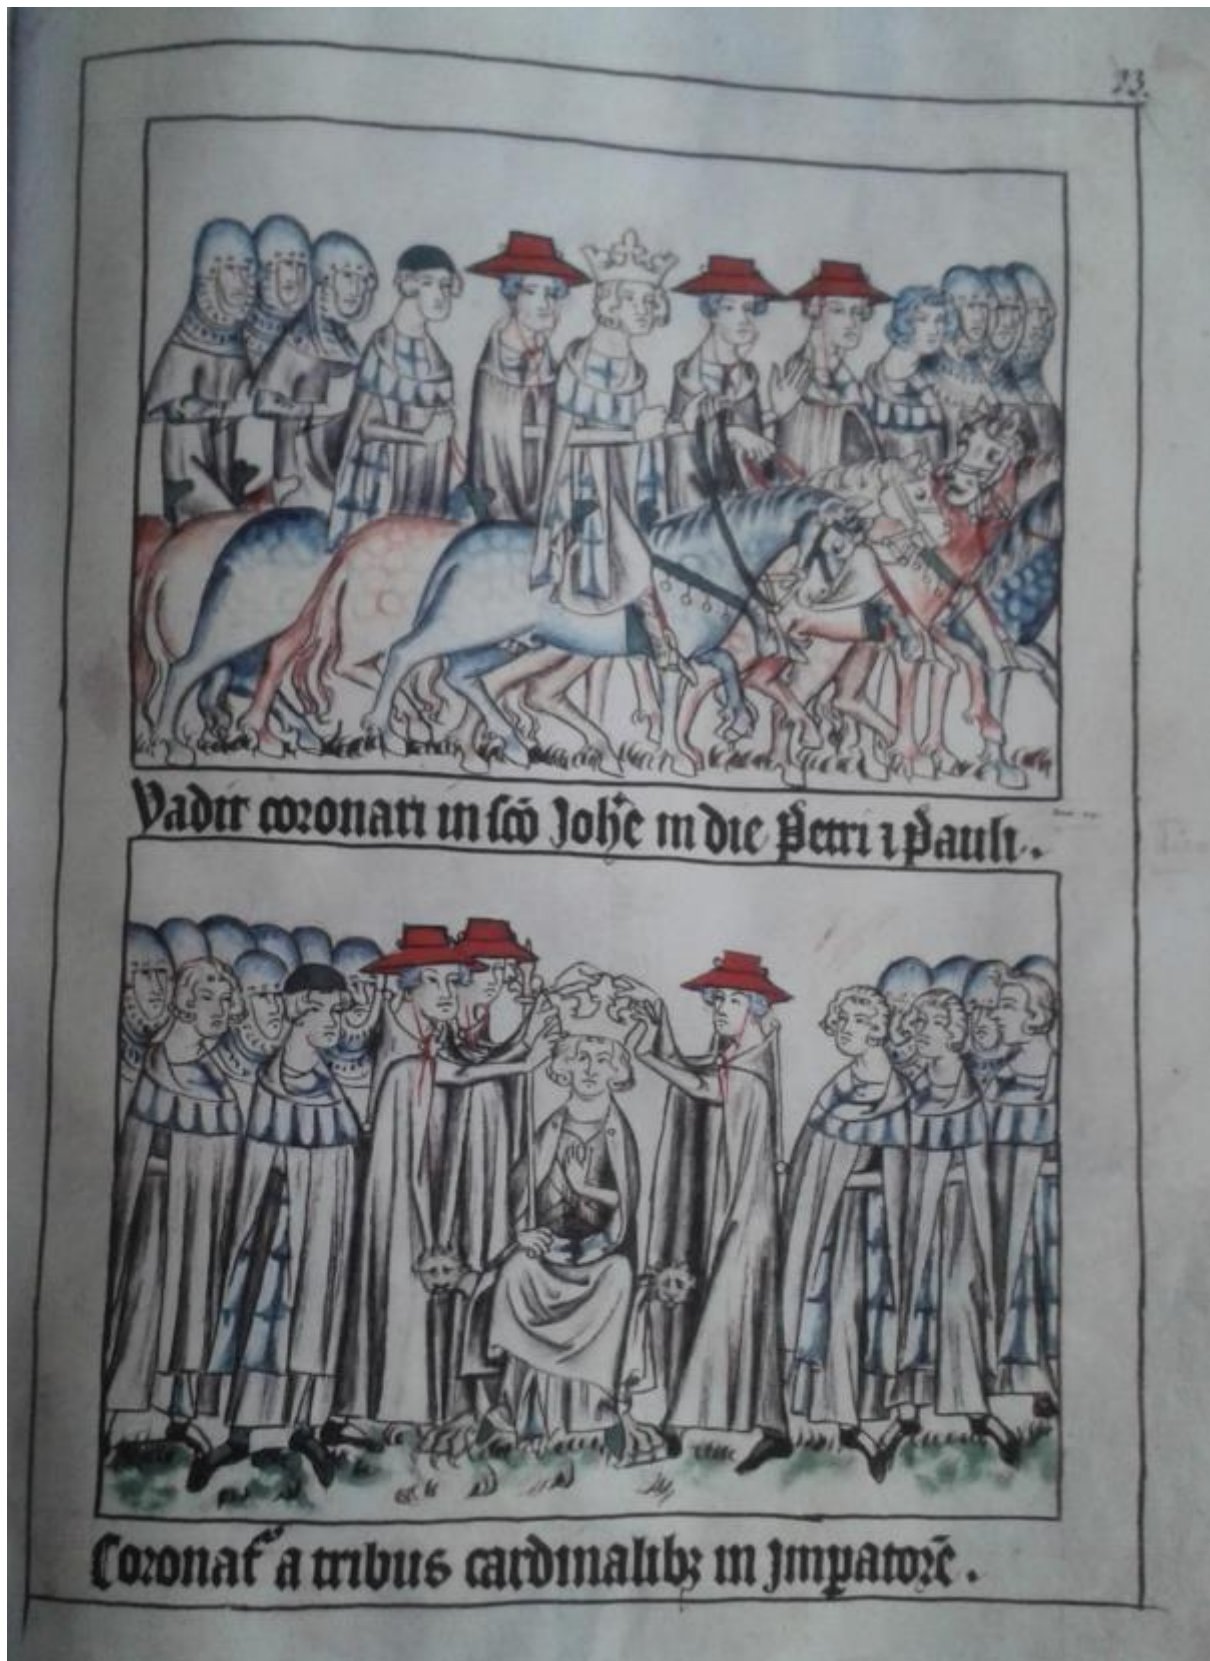 23.
Vadit coronari in scō Joh̄e in die Petri ⁊ Pauli.
Coronat᷒ a tribus cardinalibꝫ in Jmpatorē.